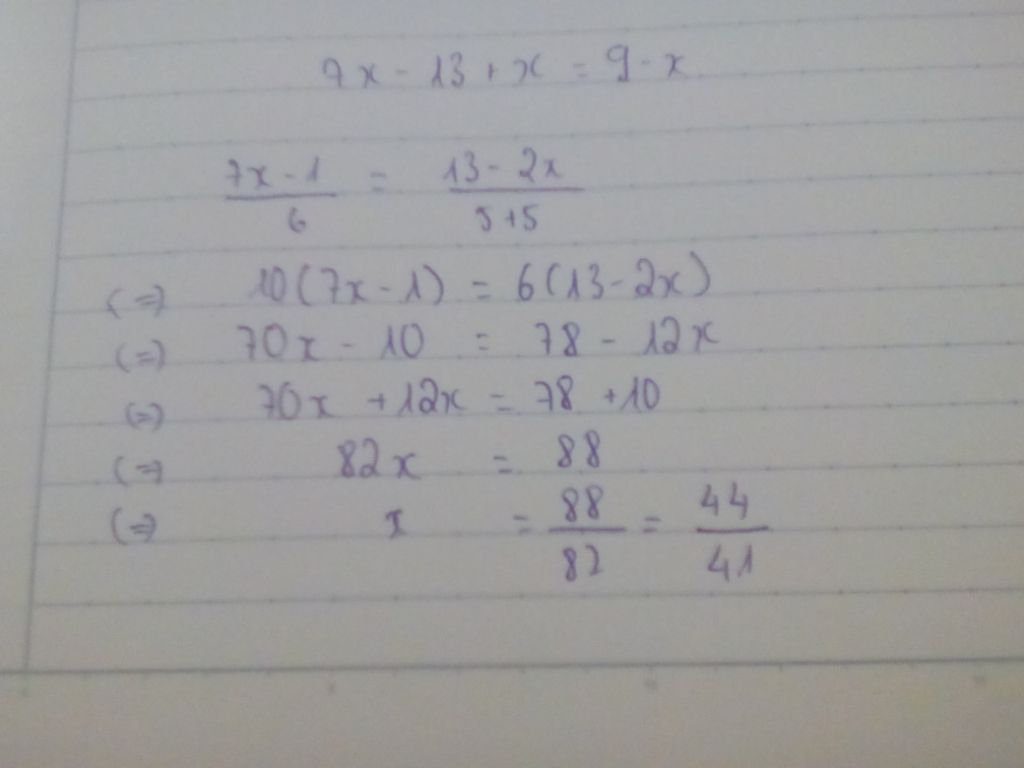 7x - 13 + x = 9 - x
7x - 1 / 6 = 13 - 2x / 5 + 5
(=) 10(7x - 1) = 6(13 - 2x)
(=) 70x - 10 = 78 - 12x
(=) 70x + 12x = 78 + 10
(=) 82x = 88
(=) x = 88 / 82 = 44 / 41